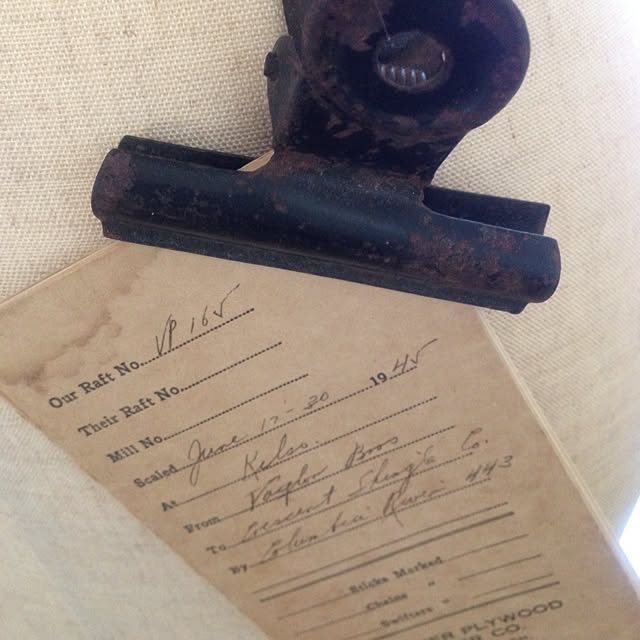 Our Raft No. VP 165
Their Raft No.
Mill No.
Scaled June 17-20 1945
At Kelso.
From Bros
To Crescent Shingle Co.
By Columbia River 443
Sticks Marked
Chains "
Swifters "
ER PLYWOOD
CO.